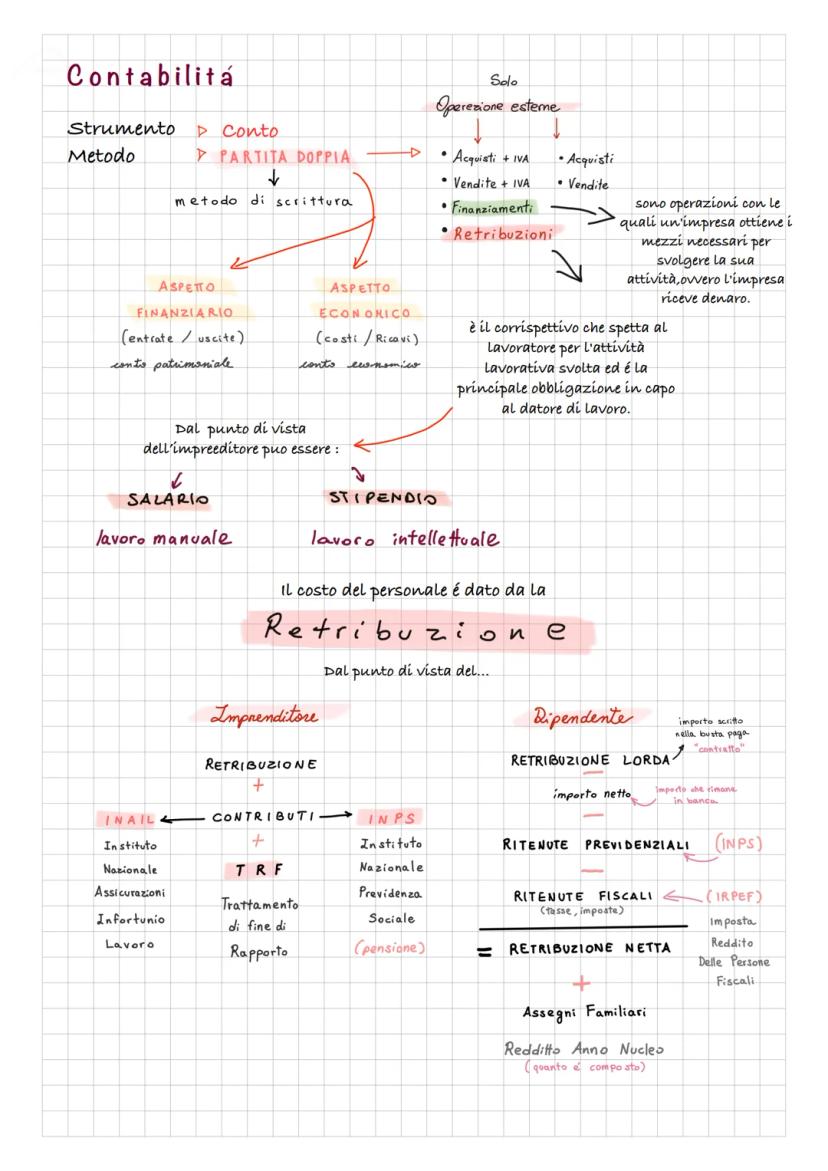 Contabilitá
Strumento ▷ Conto
Metodo ▷ PARTITA DOPPIA
metodo di scrittura
Solo
Operezione esterne
• Acquisti + IVA
• Vendite + IVA
• Finanziamenti
• Retribuzioni
• Acquisti
• Vendite
sono operazioni con le
quali un'impresa ottiene i
mezzi necessari per
svolgere la sua
attività,ovvero l'impresa
riceve denaro.
ASPETTO
FINANZIARIO
(entrate / uscite)
conto patrimoniale
ASPETTO
ECONOMICO
(costi / Ricavi)
conto economico
è il corrispettivo che spetta al
lavoratore per l'attività
lavorativa svolta ed é la
principale obbligazione in capo
al datore di lavoro.
Dal punto di vista
dell'impreeditore puo essere :
SALARIO
lavoro manuale
STIPENDIO
lavoro intellettuale
Il costo del personale é dato da la
Retribuzione
Dal punto di vista del...
Imprenditore
RETRIBUZIONE
+
INAIL ← CONTRIBUTI → INPS
+
Instituto
Nazionale
Assicurazioni
Infortunio
Lavoro
TRF
Trattamento
di fine di
Rapporto
Instituto
Nazionale
Previdenza
Sociale
(pensione)
Dipendente
importo scritto
nella busta paga
"contratto"
RETRIBUZIONE LORDA
—
importo netto
importo che rimane
in banca
—
RITENUTE PREVIDENZIALI (INPS)
—
RITENUTE FISCALI (IRPEF)
(tasse, imposte)
Imposta
Reddito
Delle Persone
Fiscali
= RETRIBUZIONE NETTA
+
Assegni Familiari
Redditto Anno Nucleo
(quanto é composto)